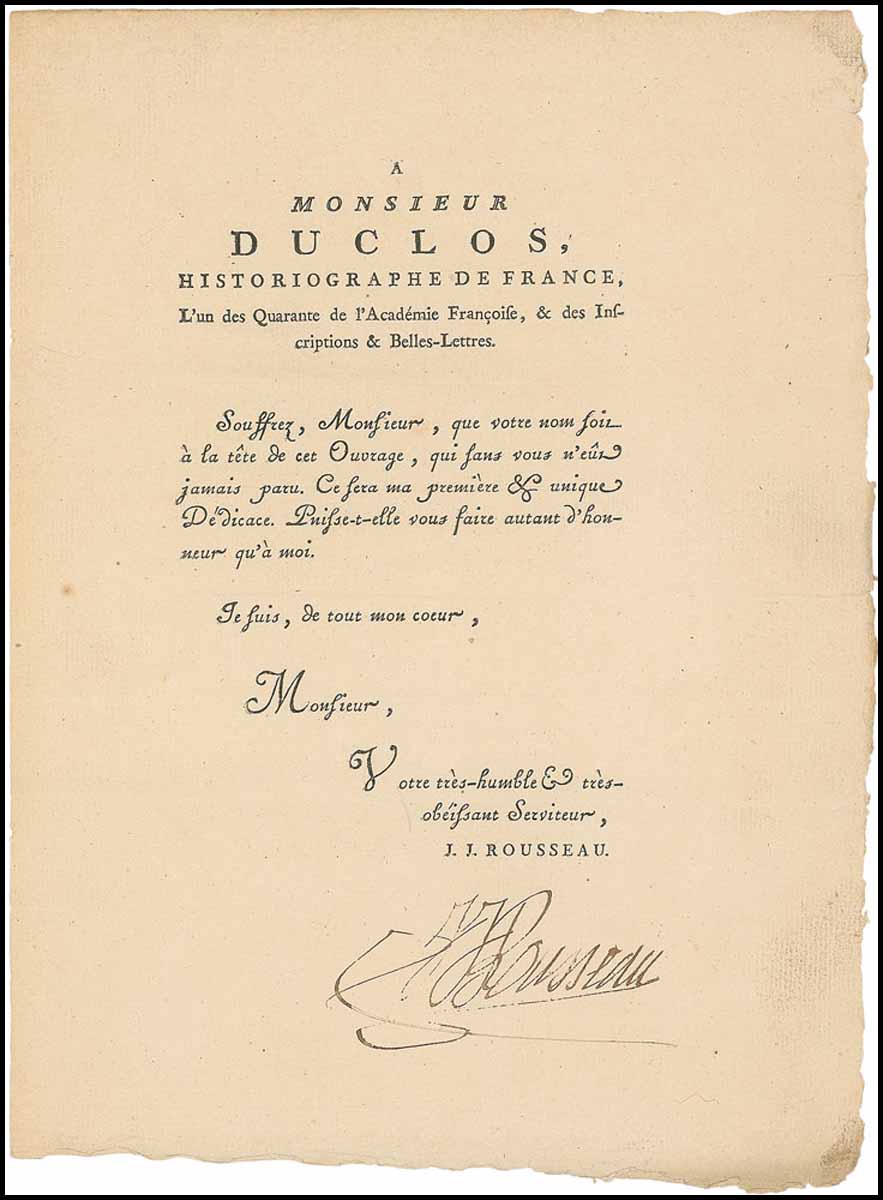 A
MONSIEUR
DUCLOS,
HISTORIOGRAPHE DE FRANCE,
L'un des Quarante de l'Académie Françoiſe, & des Inſ-
criptions & Belles-Lettres.
Souffrez, Monſieur, que votre nom ſoit
à la tête de cet Ouvrage, qui ſans vous n'eût
jamais paru. Ce ſera ma première & unique
Dédicace. Puiſse-t-elle vous faire autant d'hon-
neur qu'à moi.
Je ſuis, de tout mon coeur,
Monſieur,
Votre très-humble & très-
obéiſsant Serviteur,
J. J. ROUSSEAU.
JJRousseau